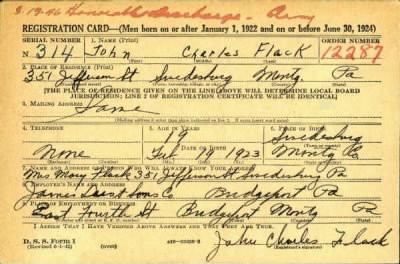 3-19-46 Honorable Discharge - Army
REGISTRATION CARD—(Men born on or after January 1, 1922 and on or before June 30, 1924)
SERIAL NUMBER 1. NAME (Print) ORDER NUMBER
N 314 John Charles Flack 12287
(First) (Middle) (Last)
2. PLACE OF RESIDENCE (Print)
351 Jefferson St Swedesburg Montg. Pa
[THE PLACE OF RESIDENCE GIVEN ON THE LINE ABOVE WILL DETERMINE LOCAL BOARD
JURISDICTION; LINE 2 OF REGISTRATION CERTIFICATE WILL BE IDENTICAL]
3. MAILING ADDRESS
Same
4. TELEPHONE 5. AGE IN YEARS 6. PLACE OF BIRTH
19 Swedesburg
DATE OF BIRTH
None Feb 1923 Montg Co
7. NAME AND ADDRESS OF PERSON WHO WILL ALWAYS KNOW YOUR ADDRESS
Mrs Mary Flack 351 Jefferson St Swedesburg Pa
8. EMPLOYER'S NAME AND ADDRESS
James Sons Co Bridgeport Pa
9. PLACE OF EMPLOYMENT OR BUSINESS
East Fourth St Bridgeport Montg Pa
I AFFIRM THAT I HAVE VERIFIED ABOVE ANSWERS AND THAT THEY ARE TRUE.
D. S. S. Form 1
(Revised 6-1-42) (over)
John Charles Flack